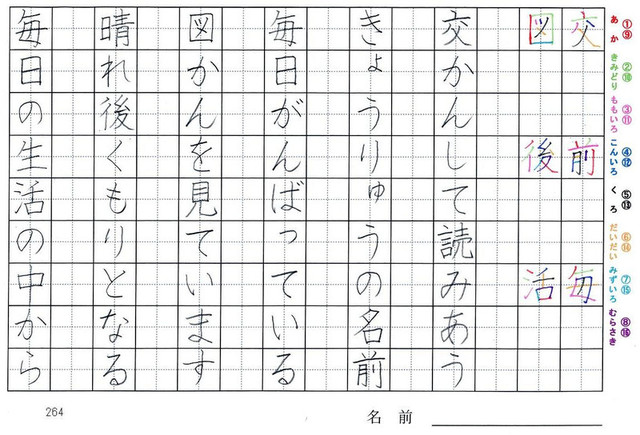 ①⑨ あか
②⑩ きみどり
③⑪ ももいろ
④⑫ こんいろ
⑤⑬ くろ
⑥⑭ だいだい
⑦⑮ みずいろ
⑧⑯ むらさき
交 前 毎
図 後 活
交かんして読みあう
きょうりゅうの名前
毎日がんばっている
図かんを見ています
晴れ後くもりとなる
毎日の生活の中から
264
名前